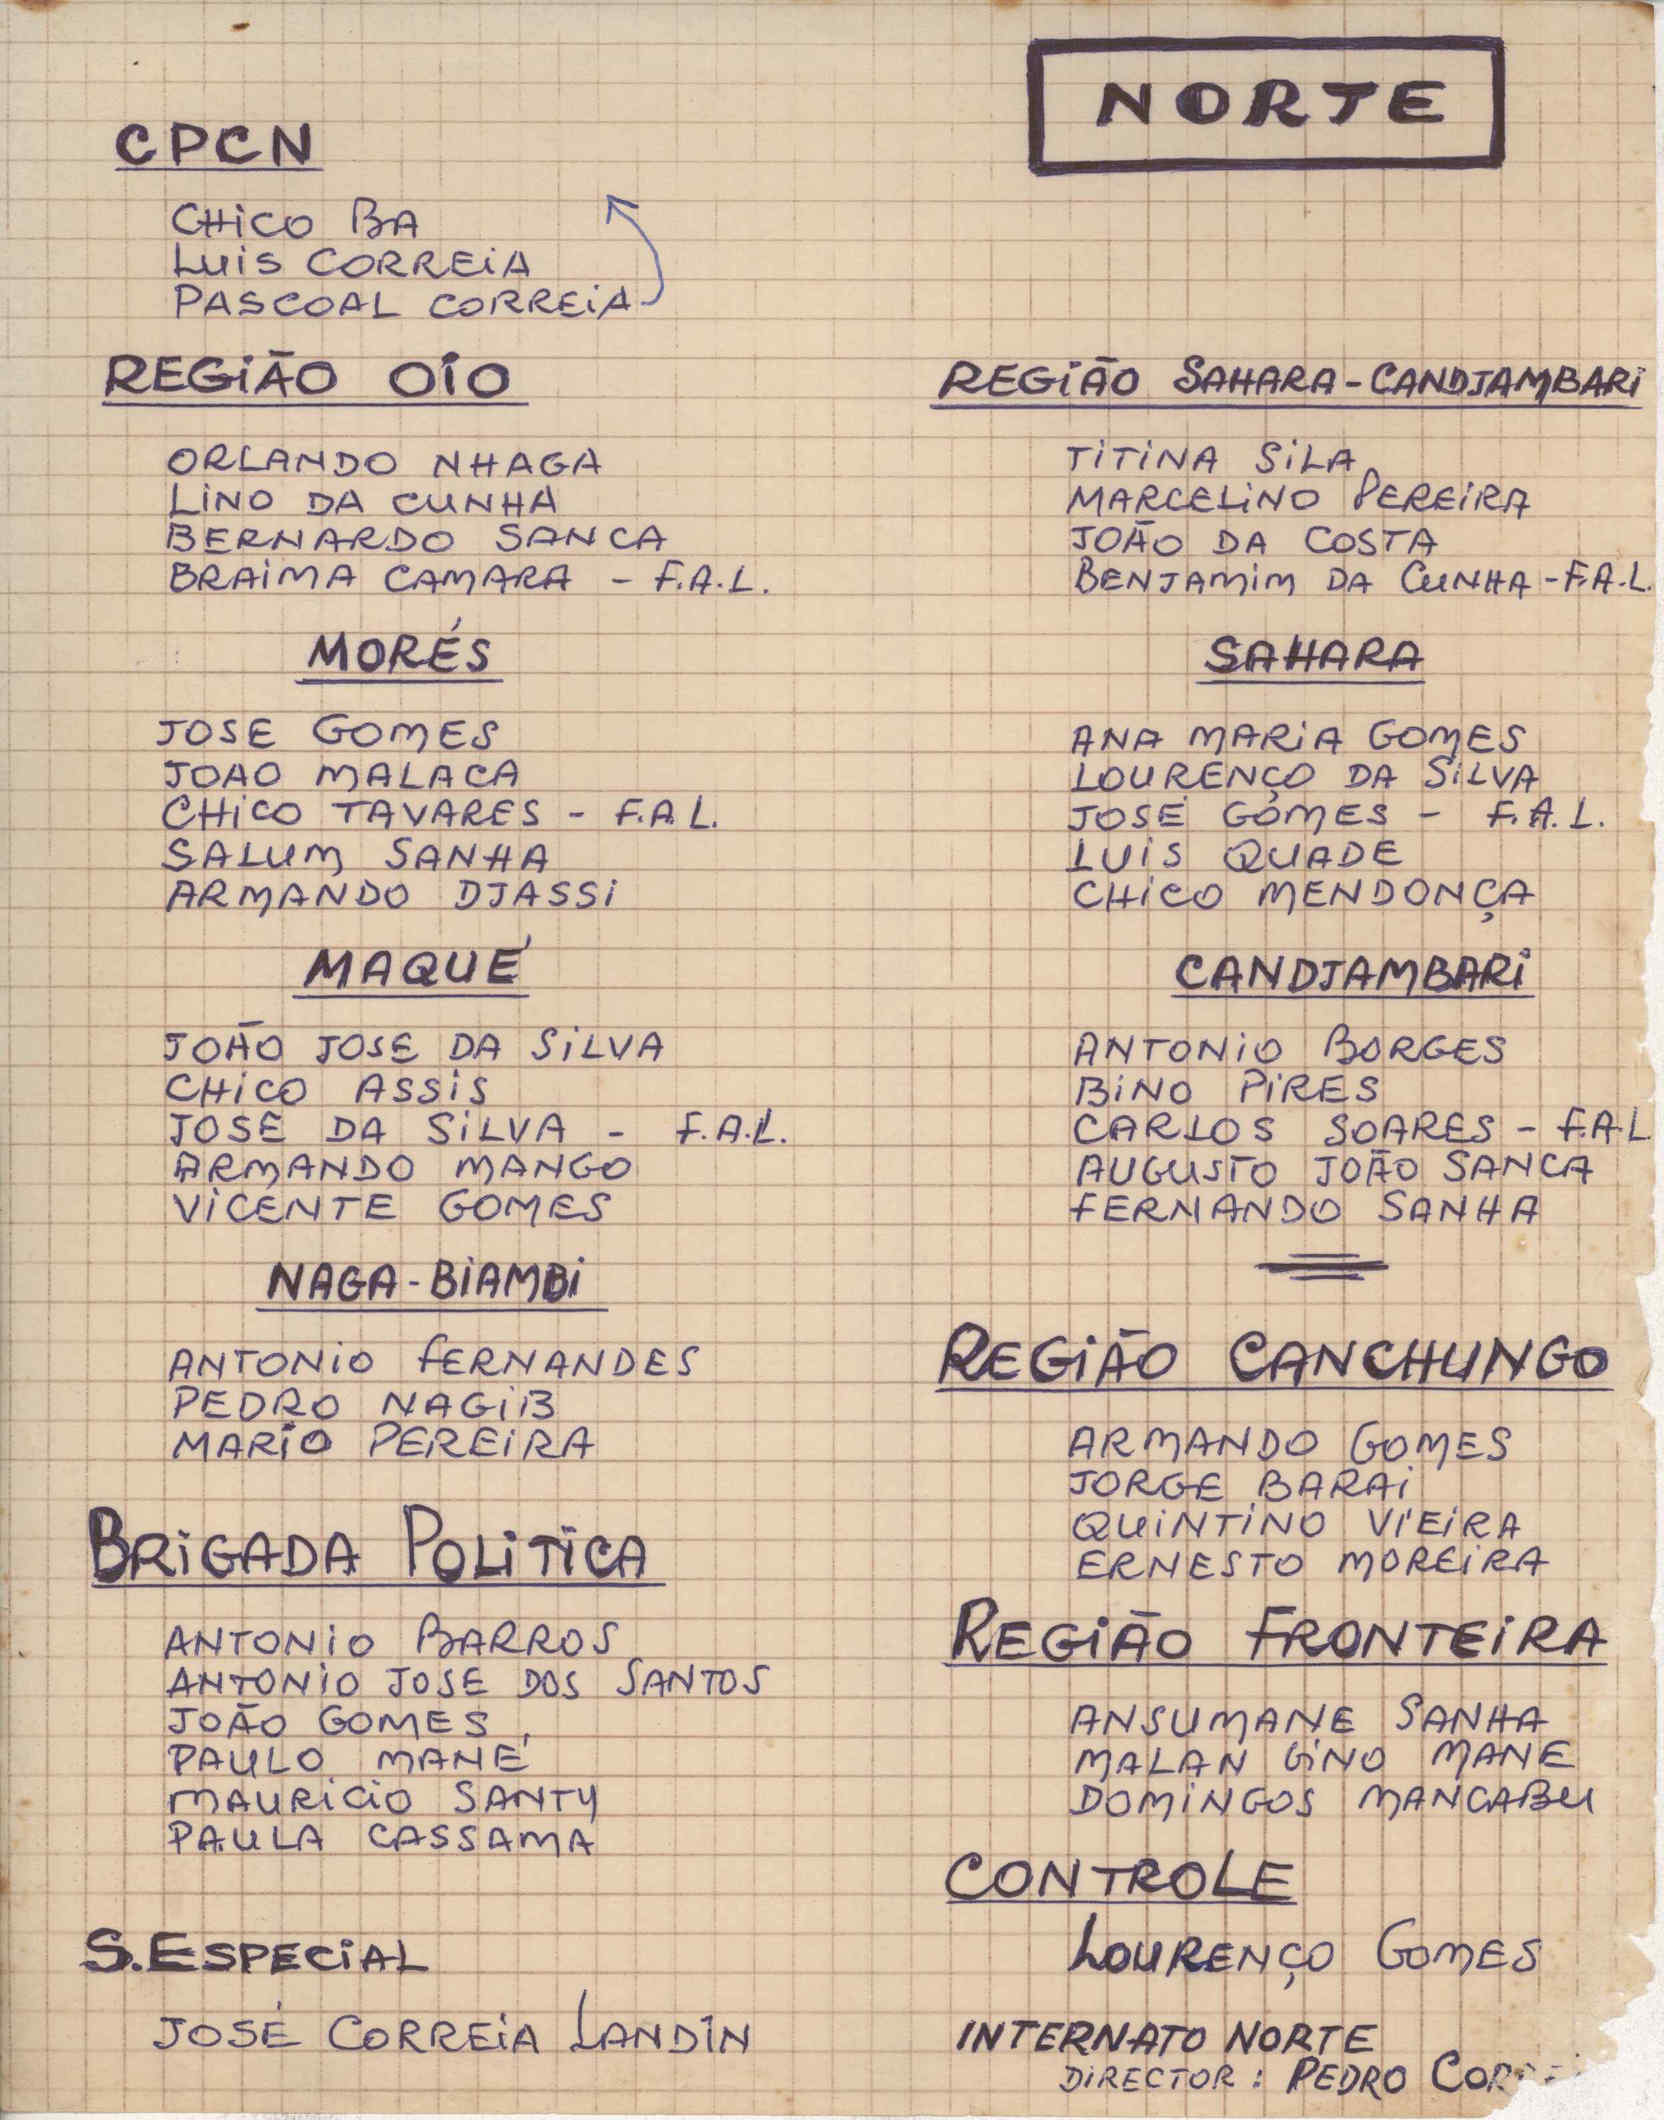 NORTE
CPCN
CHICO BA
LUIS CORREIA
PASCOAL CORREIA
REGIÃO OIO
ORLANDO NHAGA
LINO DA CUNHA
BERNARDO SANCA
BRAIMA CAMARA - F.A.L.
MORÉS
JOSE GOMES
JOAO MALACA
CHICO TAVARES - F.A.L.
SALUM SANHA
ARMANDO DJASSI
MAQUÉ
JOÃO JOSE DA SILVA
CHICO ASSIS
JOSE DA SILVA - F.A.L.
ARMANDO MANGO
VICENTE GOMES
NAGA-BIAMBI
ANTONIO FERNANDES
PEDRO NAGIB
MARIO PEREIRA
BRIGADA POLITICA
ANTONIO BARROS
ANTONIO JOSE DOS SANTOS
JOÃO GOMES
PAULO MANÉ
MAURICIO SANTY
PAULA CASSAMA
S. ESPECIAL
JOSÉ CORREIA LANDIN
REGIÃO SAHARA-CANDJAMBARI
TITINA SILA
MARCELINO PEREIRA
JOÃO DA COSTA
BENJAMIM DA CUNHA - F.A.L.
SAHARA
ANA MARIA GOMES
LOURENÇO DA SILVA
JOSÉ GOMES - F.A.L.
LUIS QUADE
CHICO MENDONÇA
CANDJAMBARI
ANTONIO BORGES
BINO PIRES
CARLOS SOARES - F.A.L
AUGUSTO JOÃO SANCA
FERNANDO SANHA
REGIÃO CANCHUNGO
ARMANDO GOMES
JORGE BARAI
QUINTINO VIEIRA
ERNESTO MOREIRA
REGIÃO FRONTEIRA
ANSUMANE SANHA
MALAN GINO MANE
DOMINGOS MANCABU
CONTROLE
LOURENÇO GOMES
INTERNATO NORTE
DIRECTOR: PEDRO